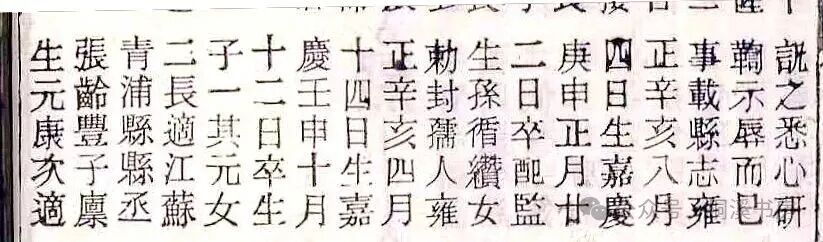 說之悉心研
鞭示辱而已
事載縣志雍
正辛亥八月
四日生嘉慶
庚申正月廿
二日卒配監
生孫循纘女
勅封孺人雍
正辛亥四月
十四日生嘉
慶壬申十月
十二日卒生
子一其元女
二長適江蘇
青浦縣丞
張齡豐子廩
生元康次適